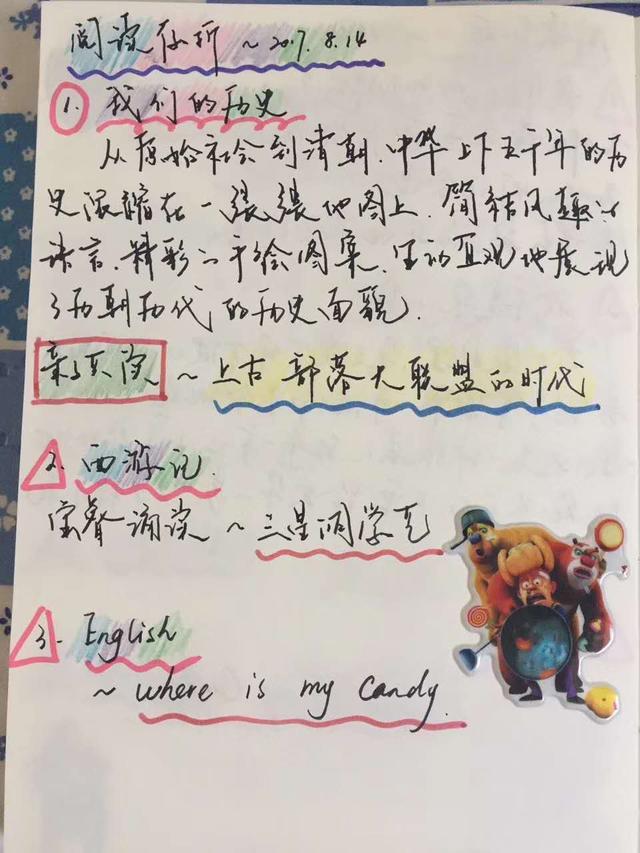 阅读存折 ~ 2017.8.14
1. 我们的历史
从原始社会到清朝,中华上下五千年的历
史浓缩在一张张地图上.简洁风趣的
语言,精彩的手绘图案,生动直观地展现
了历朝历代的历史面貌.
亲子共读 ~ 上古部落大联盟的时代
2. 西游记
诵读 ~ 三星洞学艺
3. English
~ where is my candy.